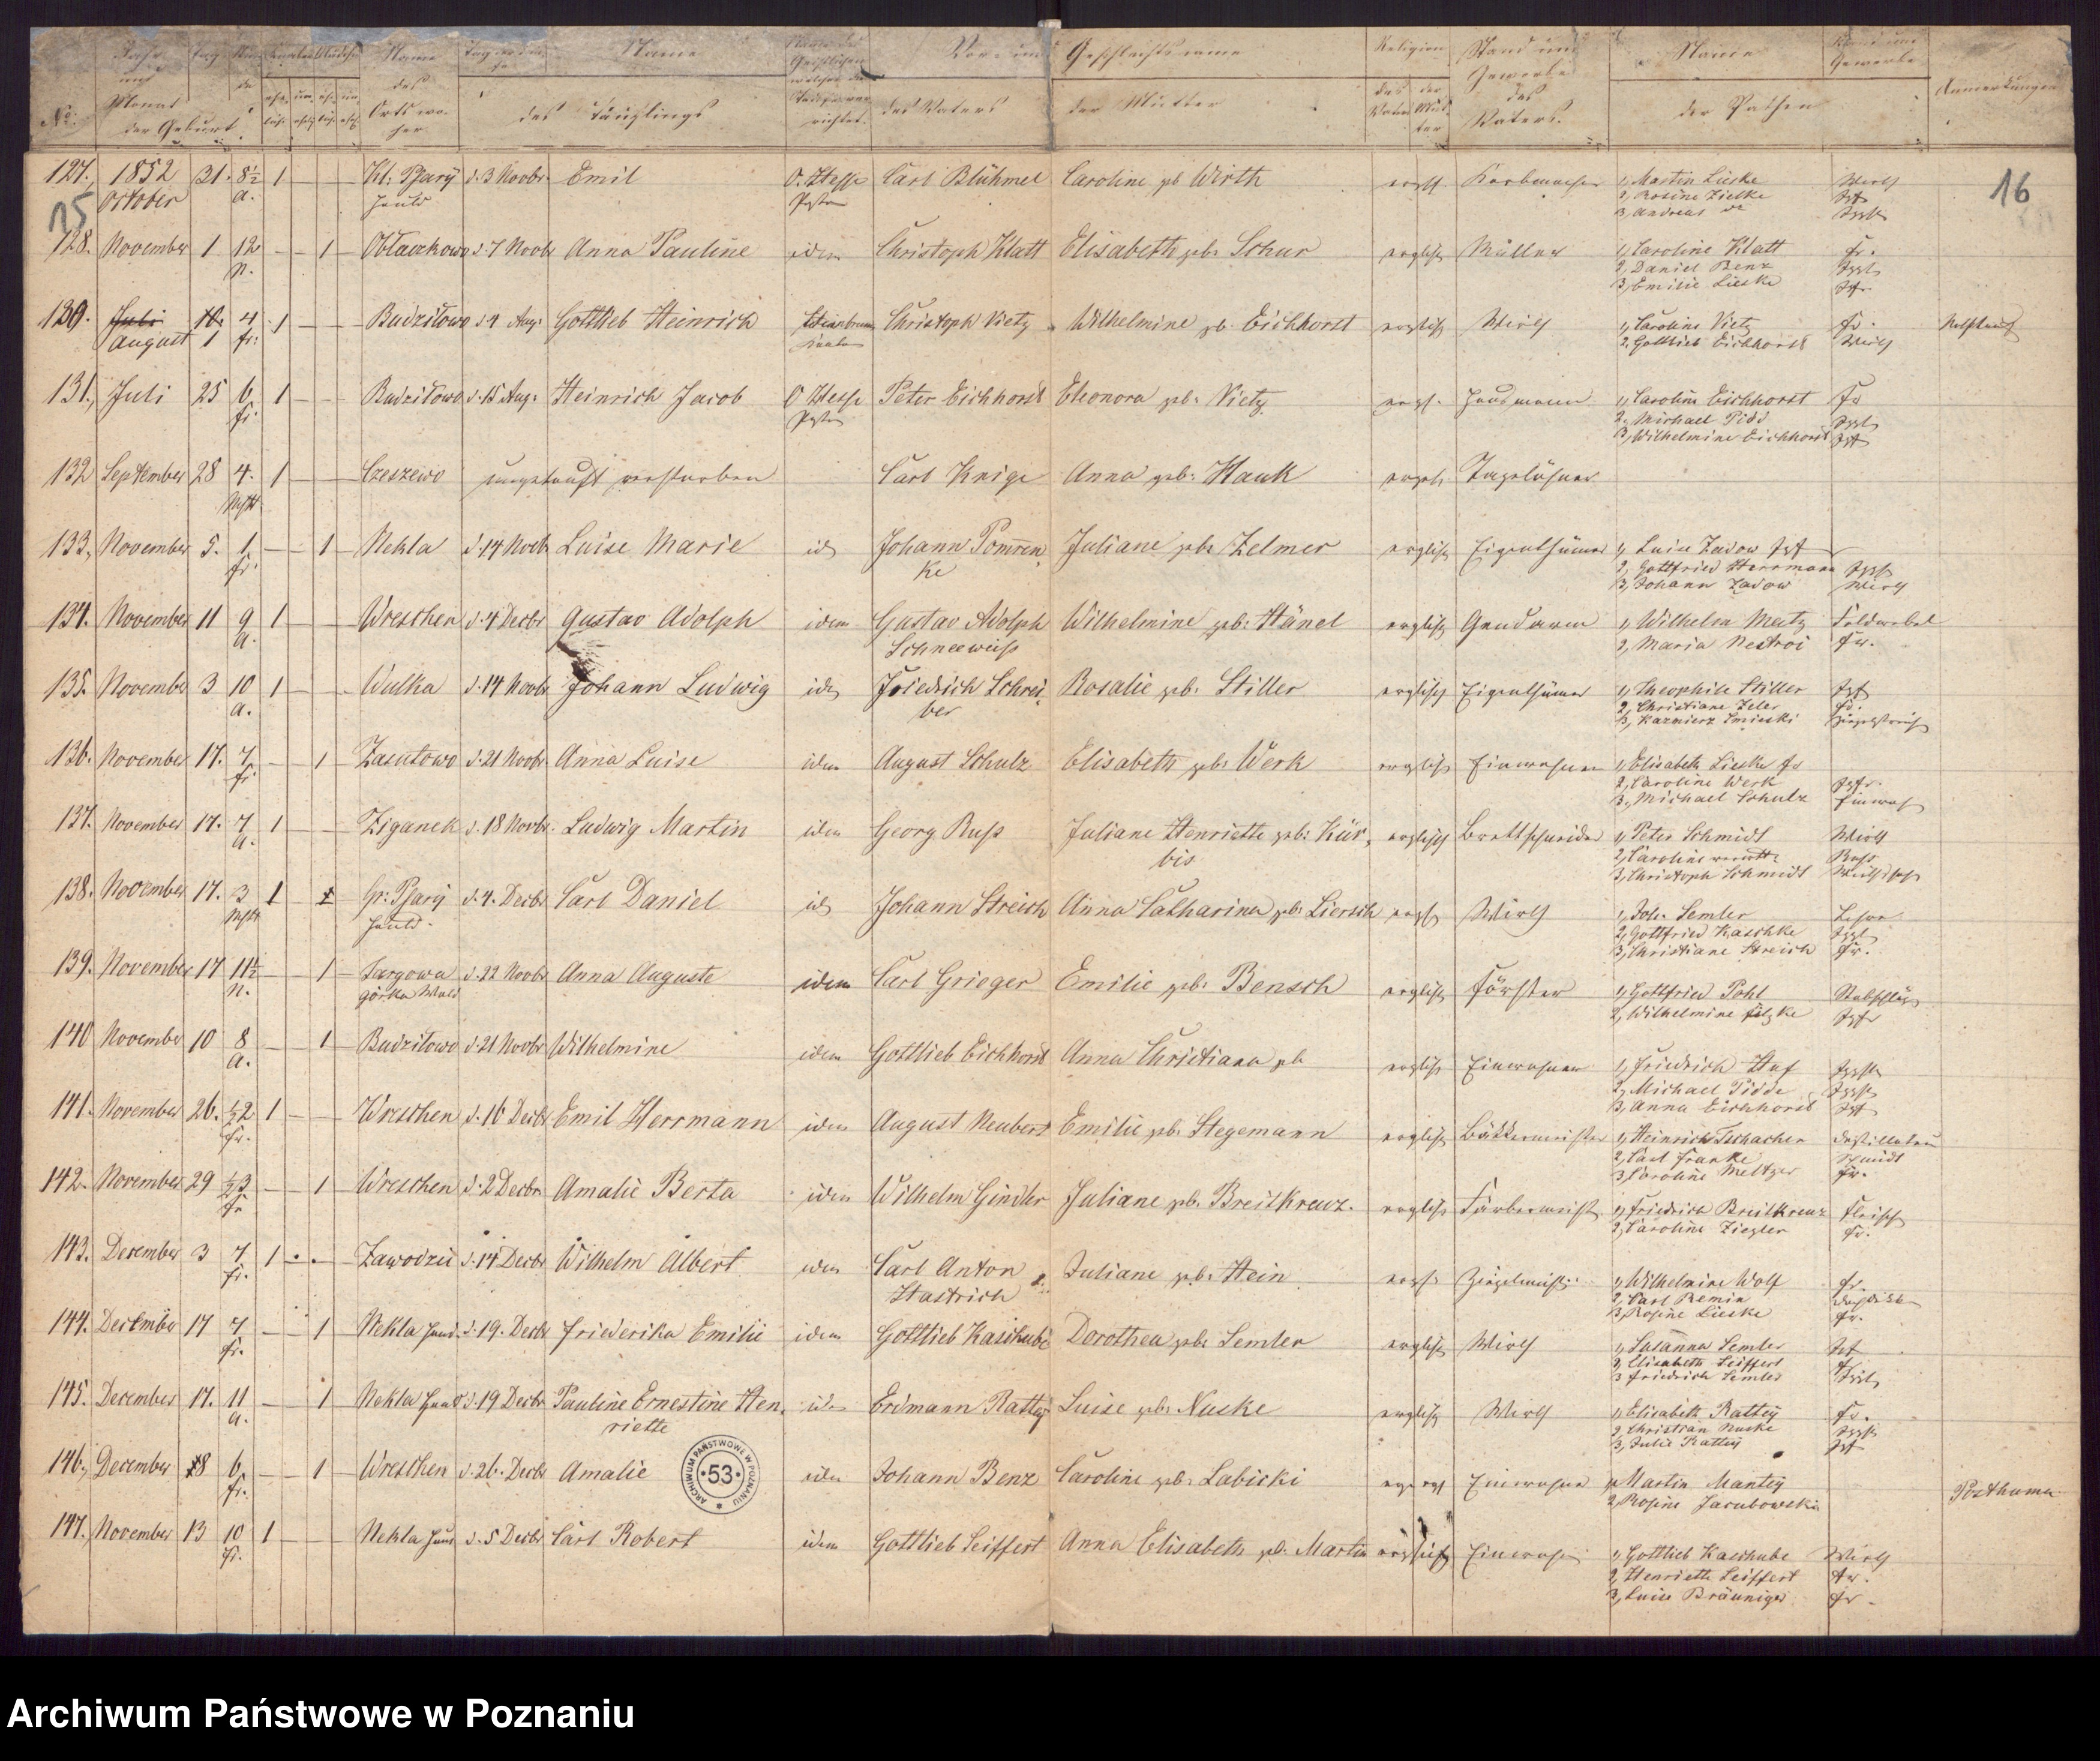 No. Jahr und Monat der Geburt Tag Knaben Mädchen Name des Orts woher Tag der Name des Täuflings Name des Geistlichen welcher die verrichtet Vor- und Geschlechtsname des Vaters der Mutter Religion des Vaters der Mutter Stand und Gewerbe des Vaters Name der Pathen Stand und Gewerbe Anmerkungen
15 16
127. 1852 October 31. 8½ a. 1 Kl: Psary Hauld d. 3 Novbr. Emil O. Hesse Pastor Carl Blühmel Caroline gb Wirth evglf. Korbmacher 1, Martin Lieske Wirth
2, Rosine Zielke Igf
3, Andreas Iggs
128. November 1 12 n. – – 1 – Obłaczkowo d. 7 Novbr Anna Pauline idem Christoph Klatt Elisabeth geb. Schur evglisch Müller 1, Caroline Klatt fr.
2, Daniel Benz Iggs
3, Emilie Lieske Igf
130. Juli August 1 4 fr. 1 – – – Budziłowo d. 4 Aug. Gottlieb Heinrich Christoph Vietz Wilhelmine gb. Eichhorst evglisch Wirth 1, Caroline Vietz fr.
2, Gottlieb Eichhorst Wirth
131. Juli 25 6 fr. 1 – – Budziłowo d. 15 Aug. Heinrich Jacob O Hesse Pastor Peter Eichhorst Eleonora geb. Vietz evgl. Hausmann 1, Caroline Eichhorst fr
2, Michael Tidd Iggs
3, Wilhelmine Eichhorst Igf
132 September 28 4. 1 – – Czeszewo ungetauft verstorben Carl Knige Anna geb. Hauk evgel. Tagelöhner
133. November 5. 1 fr. – – 1 – Nekla d. 14 Novbr Luise Marie id Johann Pommrenke Juliane geb. Zelmer evglisch Eigenthümer 1, Luise Zadow Igf
2, Gottfried Herrmann Iggs
3, Johann Zadow Wirth
134. November 11 9 a. 1 – – Wreschen d. 4 Decbr Gustav Adolph idem Gustav Adolph Schneeweiss Wilhelmine geb. Hänel evglisch Gendarm 1, Wilhelm Metz Feldwebel
2, Maria Nestroi fr.
135. November 3 10 a. 1 – – – Wulka d. 14 Novbr Johann Ludwig idem Friedrich Schreiber Rosalie geb. Stiller evglisch Eigenthümer 1, Theophile Stiller Igf
2, Christiane Zeler fr.
3, Kazmierz
136. November 17. 7 fr. – – 1 Zasutowo d. 21 Novbr. Anna Luise idem August Schulz Elisabeth geb. Werk evglisch Einwohner 1, Elisabeth Lieske fr
2, Caroline Werk Igfr.
3, Michael Schulz Einwoh
137. November 17. 7 a. 1 – – Ziganek d. 18 Novbr. Ludwig Martin idem Georg Russ Juliane Henriette geb. Kürbis evglisch Brettschneider 1, Peter Schmidt Wirth
2, Caroline verwitt. Russ
3, Christoph Schmidt
138. November 17. 3 1 – 1 Gr: Psary Hauld. d. 4. Decbr Carl Daniel id Johann Streich Anna Catharina geb. Liersch evgl Wirth 1, Joh. Semler Lehrer
2, Gottfried Kaschke Iggs
3, Christiane Streich fr.
139. November 17 11½ n. – 1 – Targowa górka Wald d. 22 Novbr Anna Auguste idem Carl Grieger Emilie geb. Bensch evglisch Förster 1, Gottfried Pohl
2, Wilhelmine Filzke Igfr
140 November 10 8 a. – 1 – Budziłowo d. 21 Novbr Wilhelmine idem Gottlieb Eichhorst Anna Christiana gb evglisch Einwohner 1, Friedrich Huf Iggs
2, Michael Tidde Iggs
3, Anna Eichhorst Igf
141. November 26. ½2 fr. 1 – – Wreschen d. 16 Decbr Emil Herrmann idem August Neubert Emilie geb. Stegemann evglisch Bäckermeister 1, Heinrich Tschacher Destillateur
2, Carl Franke Schmidt
3, Caroline Meltzer fr.
142. November 29 ½3 fr – 1 Wreschen d. 2 Decbr Amalie Berta idem Wilhelm Gindler Juliane geb. Breitkreuz. evglisch Färbermeist. 1, Friedrich Breitkreuz Fleisch
2, Caroline Ziegler fr.
143. December 3 7 fr. 1 Zawodzie d. 14 Decbr Wilhelm Albert idem Carl Anton Hastrich Juliane geb. Hein evgl. Ziegelmeist. 1, Wilhelmine Wolf fr.
2, Carl Remin
3, Rosine Lieske fr.
144. December 17 7 fr. – 1 Nekla Haul. d. 19. Decbr Friederika Emilie idem Gottlieb Kaschube Dorothea geb. Semler evglisch Wirth 1, Susanna Semler Igf
2, Elisabeth Seiffert fr
3 Friedrich Semler Iggs
145. December 17. 11 a. – 1 Nekla Haul d. 19 Decbr Pauline Ernestine Henriette idem Erdmann Rattey Luise geb. Nuske evglisch Wirth 1, Elisabeth Rattey fr.
2, Christian Nuske Iggs
3, Julie Rattey Igf
146. December 18 6 fr. – 1 – Wreschen d. 26. Decbr Amalie idem Johann Benz Caroline geb. Labicki evg evgl Einwohner 1, Martin Mantey
2, Rosine Jacubowski Posthuma
ARCHIWUM PAŃSTWOWE W POZNANIU 53
147. November 13 10 fr. 1 – – Nekla Haul d. 5 Decbr Carl Robert idem Gottlieb Seiffert Anna Elisabeth geb. Martin evglisch Einwohner 1, Gottlieb Kaschube Wirth
2, Henriette Seiffert fr.
3, Luise Bräuniger fr.
Archiwum Państwowe w Poznaniu